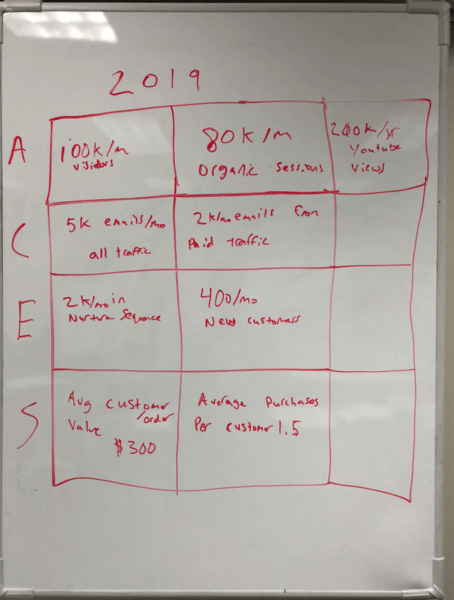 2019
A
100k/m
visitors
80k/m
organic sessions
200k/yr
Youtube
views
C
5k emails/mo
all traffic
2k/mo emails from
Paid traffic
E
2k/mo in
Nurture Sequence
400/mo
New customers
S
Avg customer
/order
Value
$300
Average Purchases
Per customer 1.5